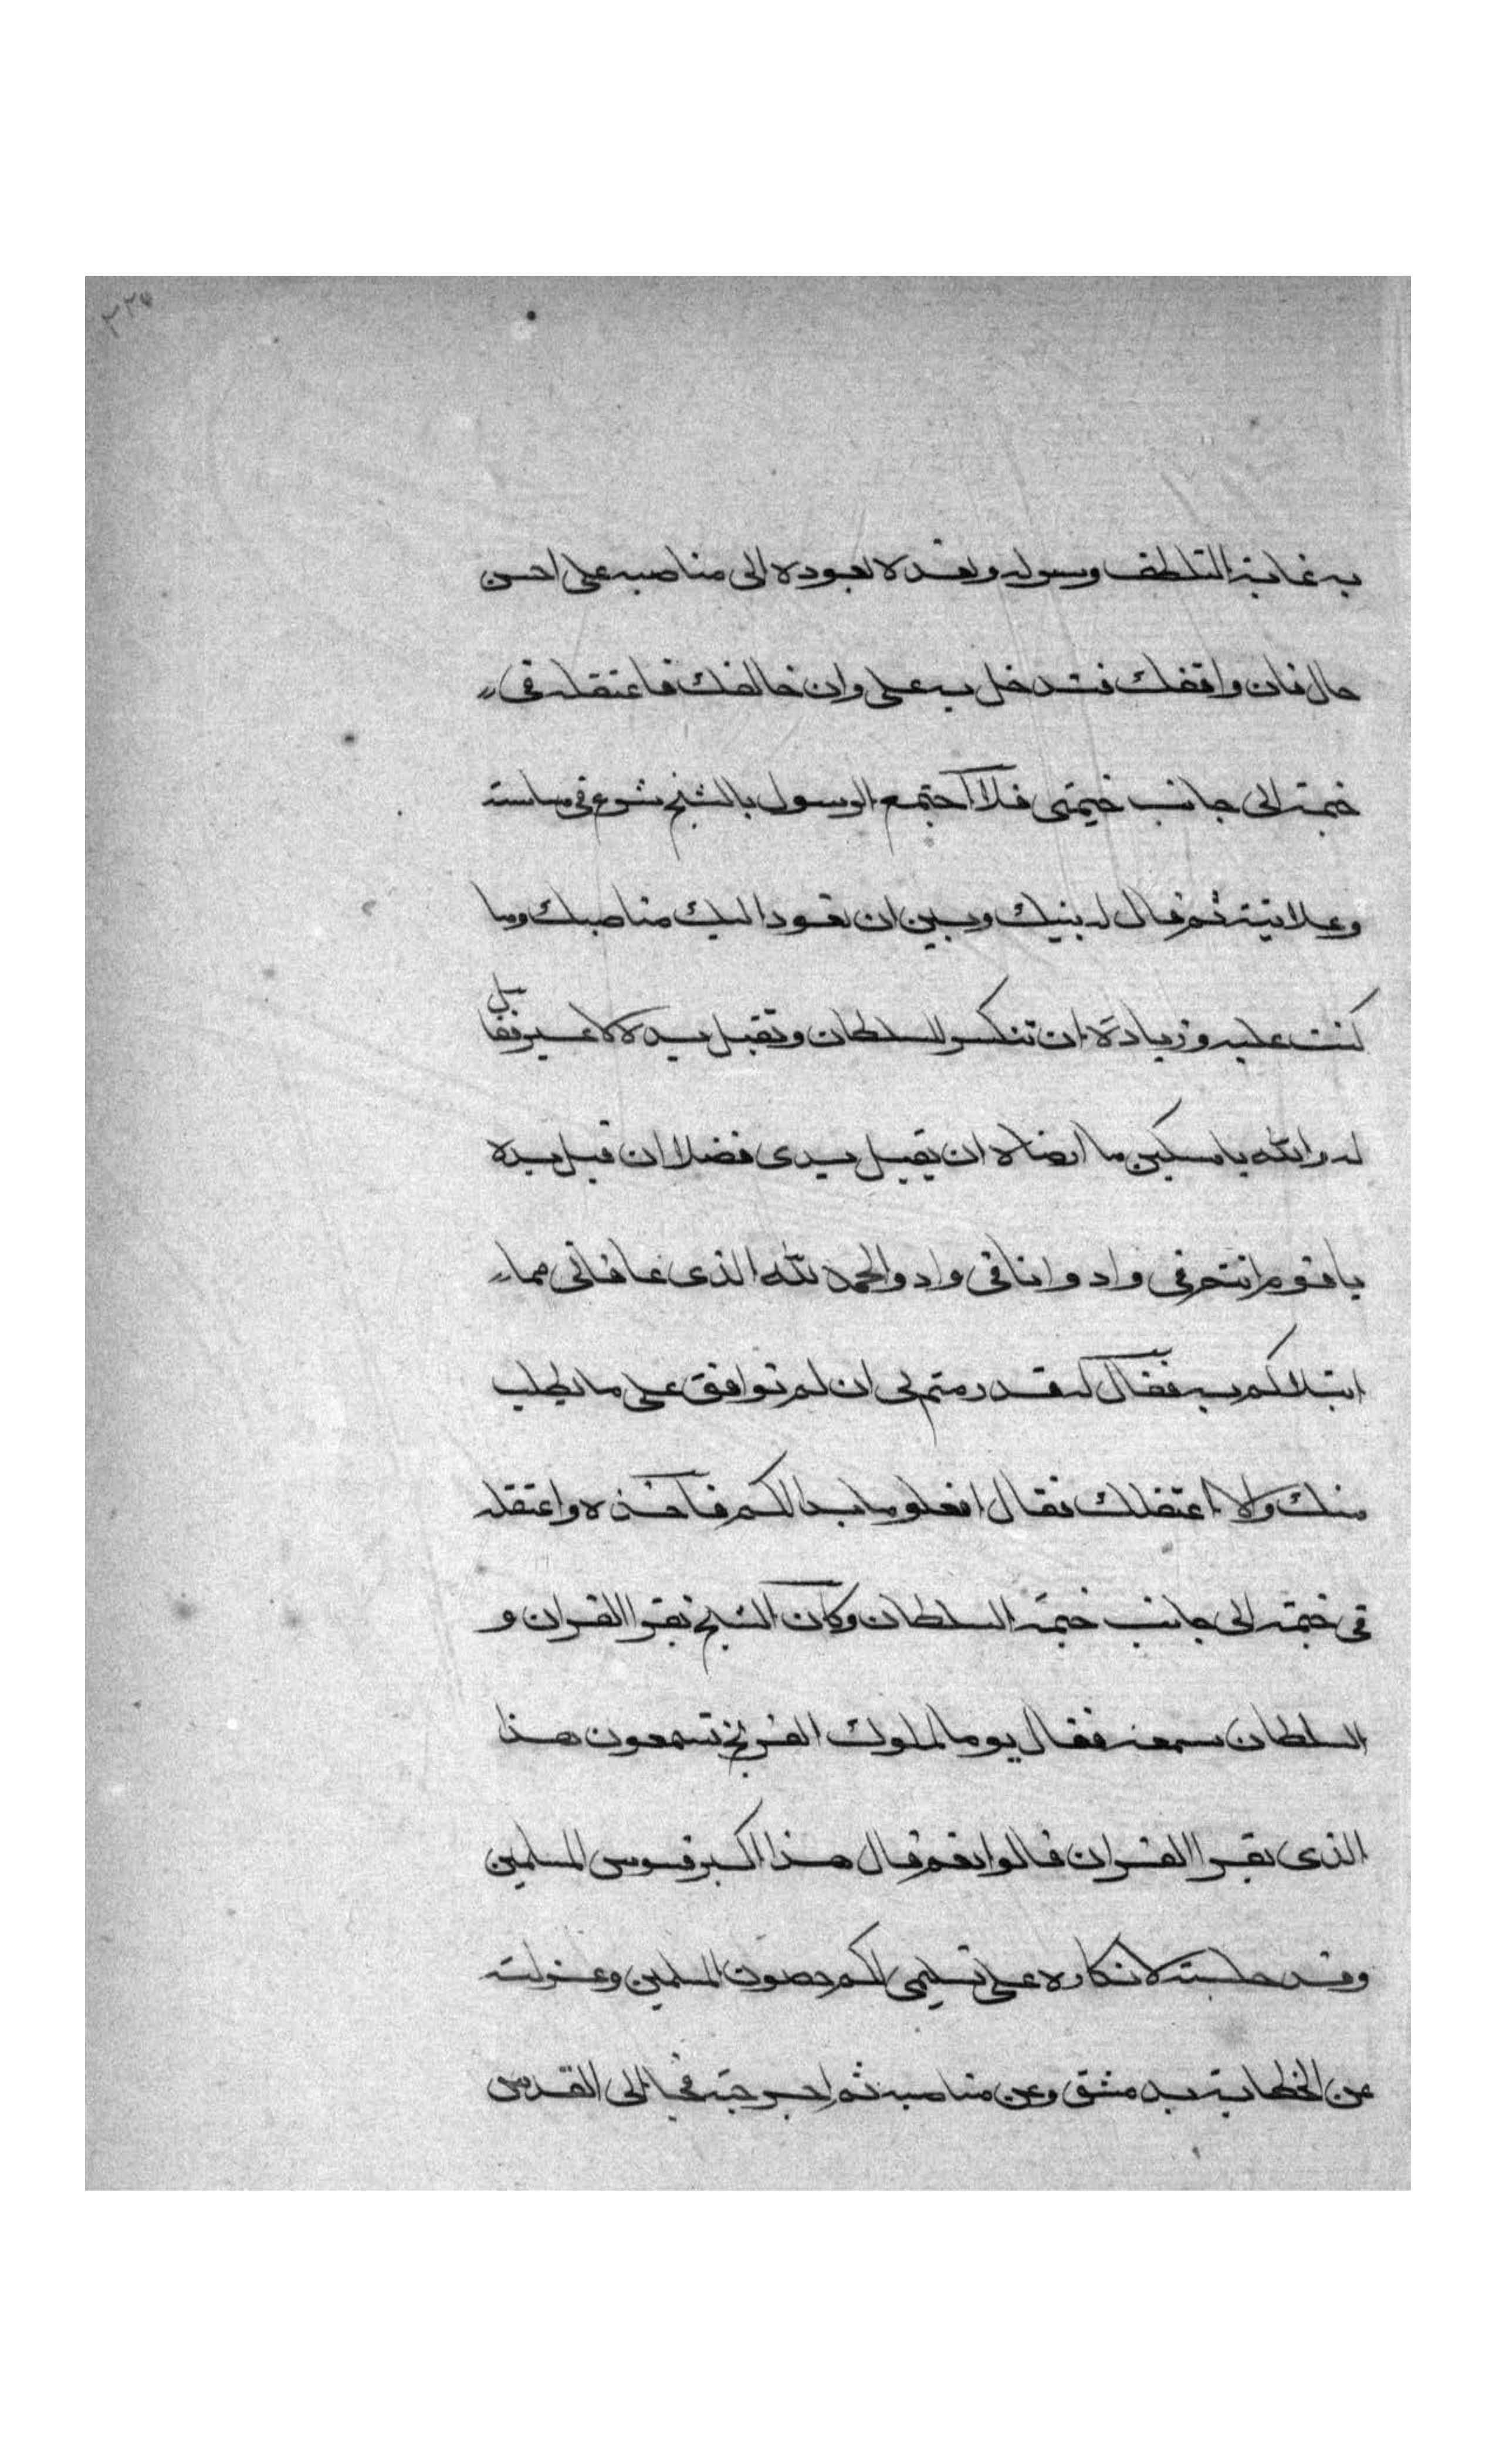 ٣٢٧
به غاية التلطف وسوله وتعده لعوده الى مناصبه على احسن
حال فان وافقك فتدخل به على وان خالفك فاعتقله فى
خيمة الى جانب خيمتى فلما اجتمع الرسول بالشيخ شرع فى سياسته
وعلانيته ثم قال له بينك وبين ان تعود اليك مناصبك وما
كنت عليه وزيادة ان تنكسر للسلطان وتقبل يده لا غير فقال
له والله يا مسكين ما ارضاه ان يقبل يدى فضلا ان قبل يده
يا قوم انتم فى واد وانا فى واد والحمد لله الذى عافانى مما
ابتلاكم به فقال له قد رسم لى ان لم توافق على ما يطلب
منك والا اعتقلك فقال افعلو ما بدا لكم فاخذه واعتقله
فى خيمة الى جانب خيمة السلطان وكان الشيخ يقرا القران و
السلطان يسمعه فقال يوما لملوك الفرنج تسمعون هذا
الذى يقرا القران قالوا نعم قال هذا اكبر قسوس المسلمين
وقد حبسته لانكاره على تسليمى لكم حصون المسلمين وعزلته
عن الخطابة بدمشق وعن مناصبه ثم اخرجته فجا الى القدس